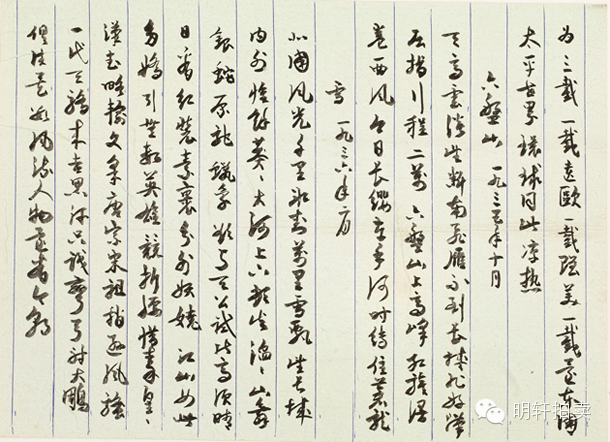 为三截一截遗欧一截赠美一截还东国
太平世界环球同此凉热
六盘山 一九三五年十月
天高云淡望断南飞雁不到长城非好汉
屈指行程二万 六盘山上高峰红旗漫
卷西风今日长缨在手何时缚住苍龙
雪 一九三六年二月
北国风光千里冰封万里雪飘望长城
内外惟余莽〻大河上下顿失滔〻山舞
银蛇原驰蜡象欲与天公试比高须晴
日看红装素裹分外妖娆 江山如此
多娇引无数英雄竞折腰惜秦皇〻
汉武略输文采唐宗宋祖稍逊风骚
一代天骄成吉思汗只识弯弓射大鵰
俱往矣数风流人物还看今朝
明轩拍卖